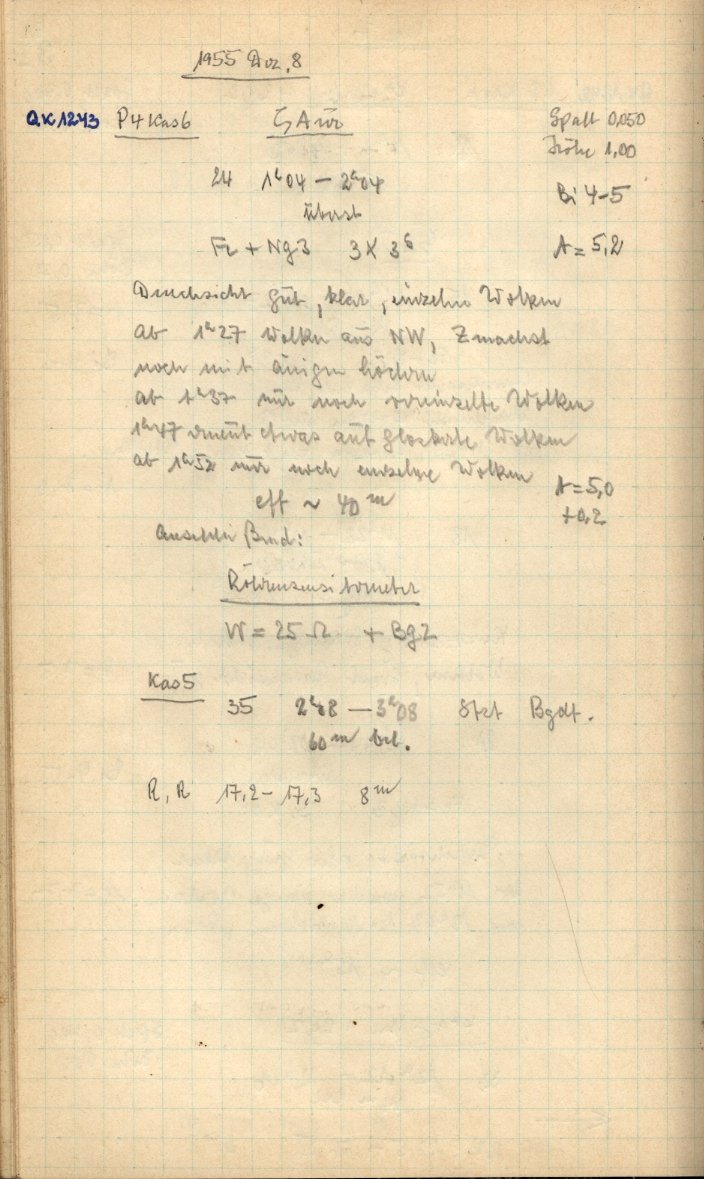 1955 Dez. 8
QK1243 P4 Kas6 ζ Aur Spalt 0,050
Höhe 1,00
24 1h04 – 2h04 Bi 4-5
überst
Fe + Ng3 3 X 3s A = 5,2
Durchsicht gut, klar, einzelne Wolken
ab 1h27 Wolken aus NW, Zunächst
noch mit einigen Löchern
ab 1h37 nur noch vereinzelte Wolken
1h47 erneut etwas aufgelockerte Wolken
ab 1h52 nur noch einzelne Wolken A = 5,0
eff ~ 40m +0,2
Röhrensensitometer
W = 25 Ω + Bg2
Kas5
35 2h08 – 3h08
60m bel.
R, R 17,2 – 17,3 8m